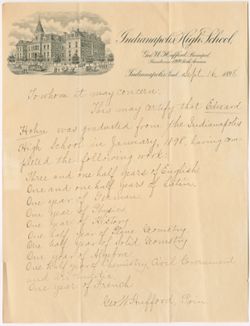 Indianapolis High School,
Geo. W. Hufford, Principal,
Indianapolis, Ind., Sept. 16 1898
To whom it may concern:
This may certify that Edward
Hahn was graduated from the Indianapolis
High School in January, 1898, having com-
pleted the following work:
Three and one half years of English
One and one half years of Latin
One year of German
One year of Physics
One year of History
One half year of Plane Geometry
One half year of Solid Geometry
One year of Algebra
One half year of Chemistry, Civil Government
and
One year of French
Geo. W. Hufford, Prin.